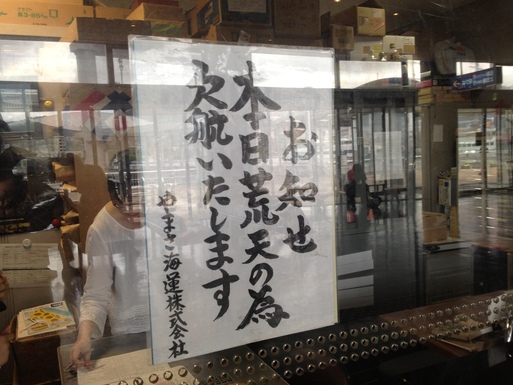 お知せ
本日荒天の為
欠航いたします
やまさ海運株式会社